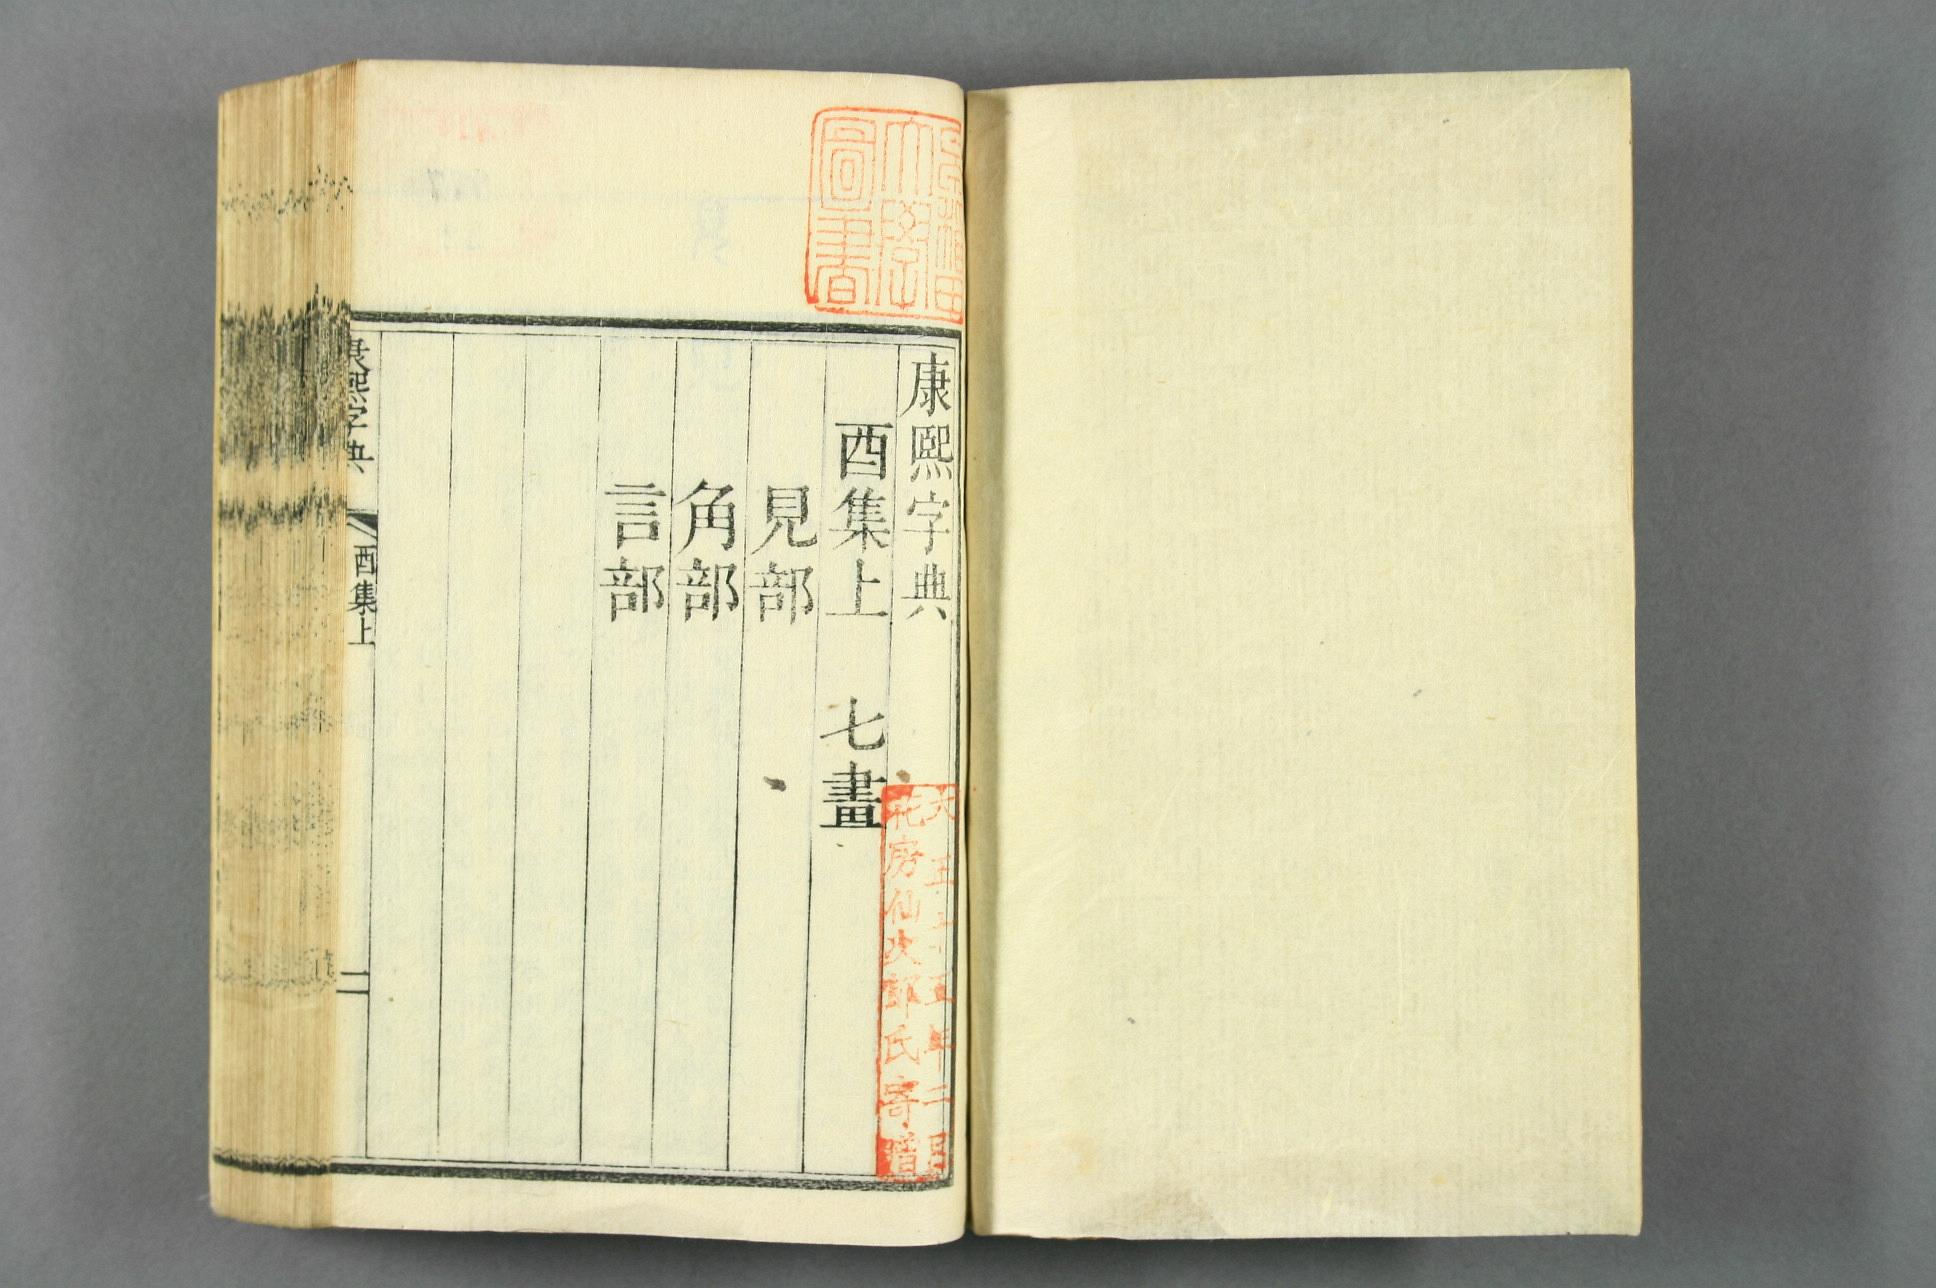 早稲田
大學
圖書
康熙字典
酉集上 七畫
見部
角部
言部
大正十五年二月
花房仙次郎氏寄贈
康熙字典
酉集上
二